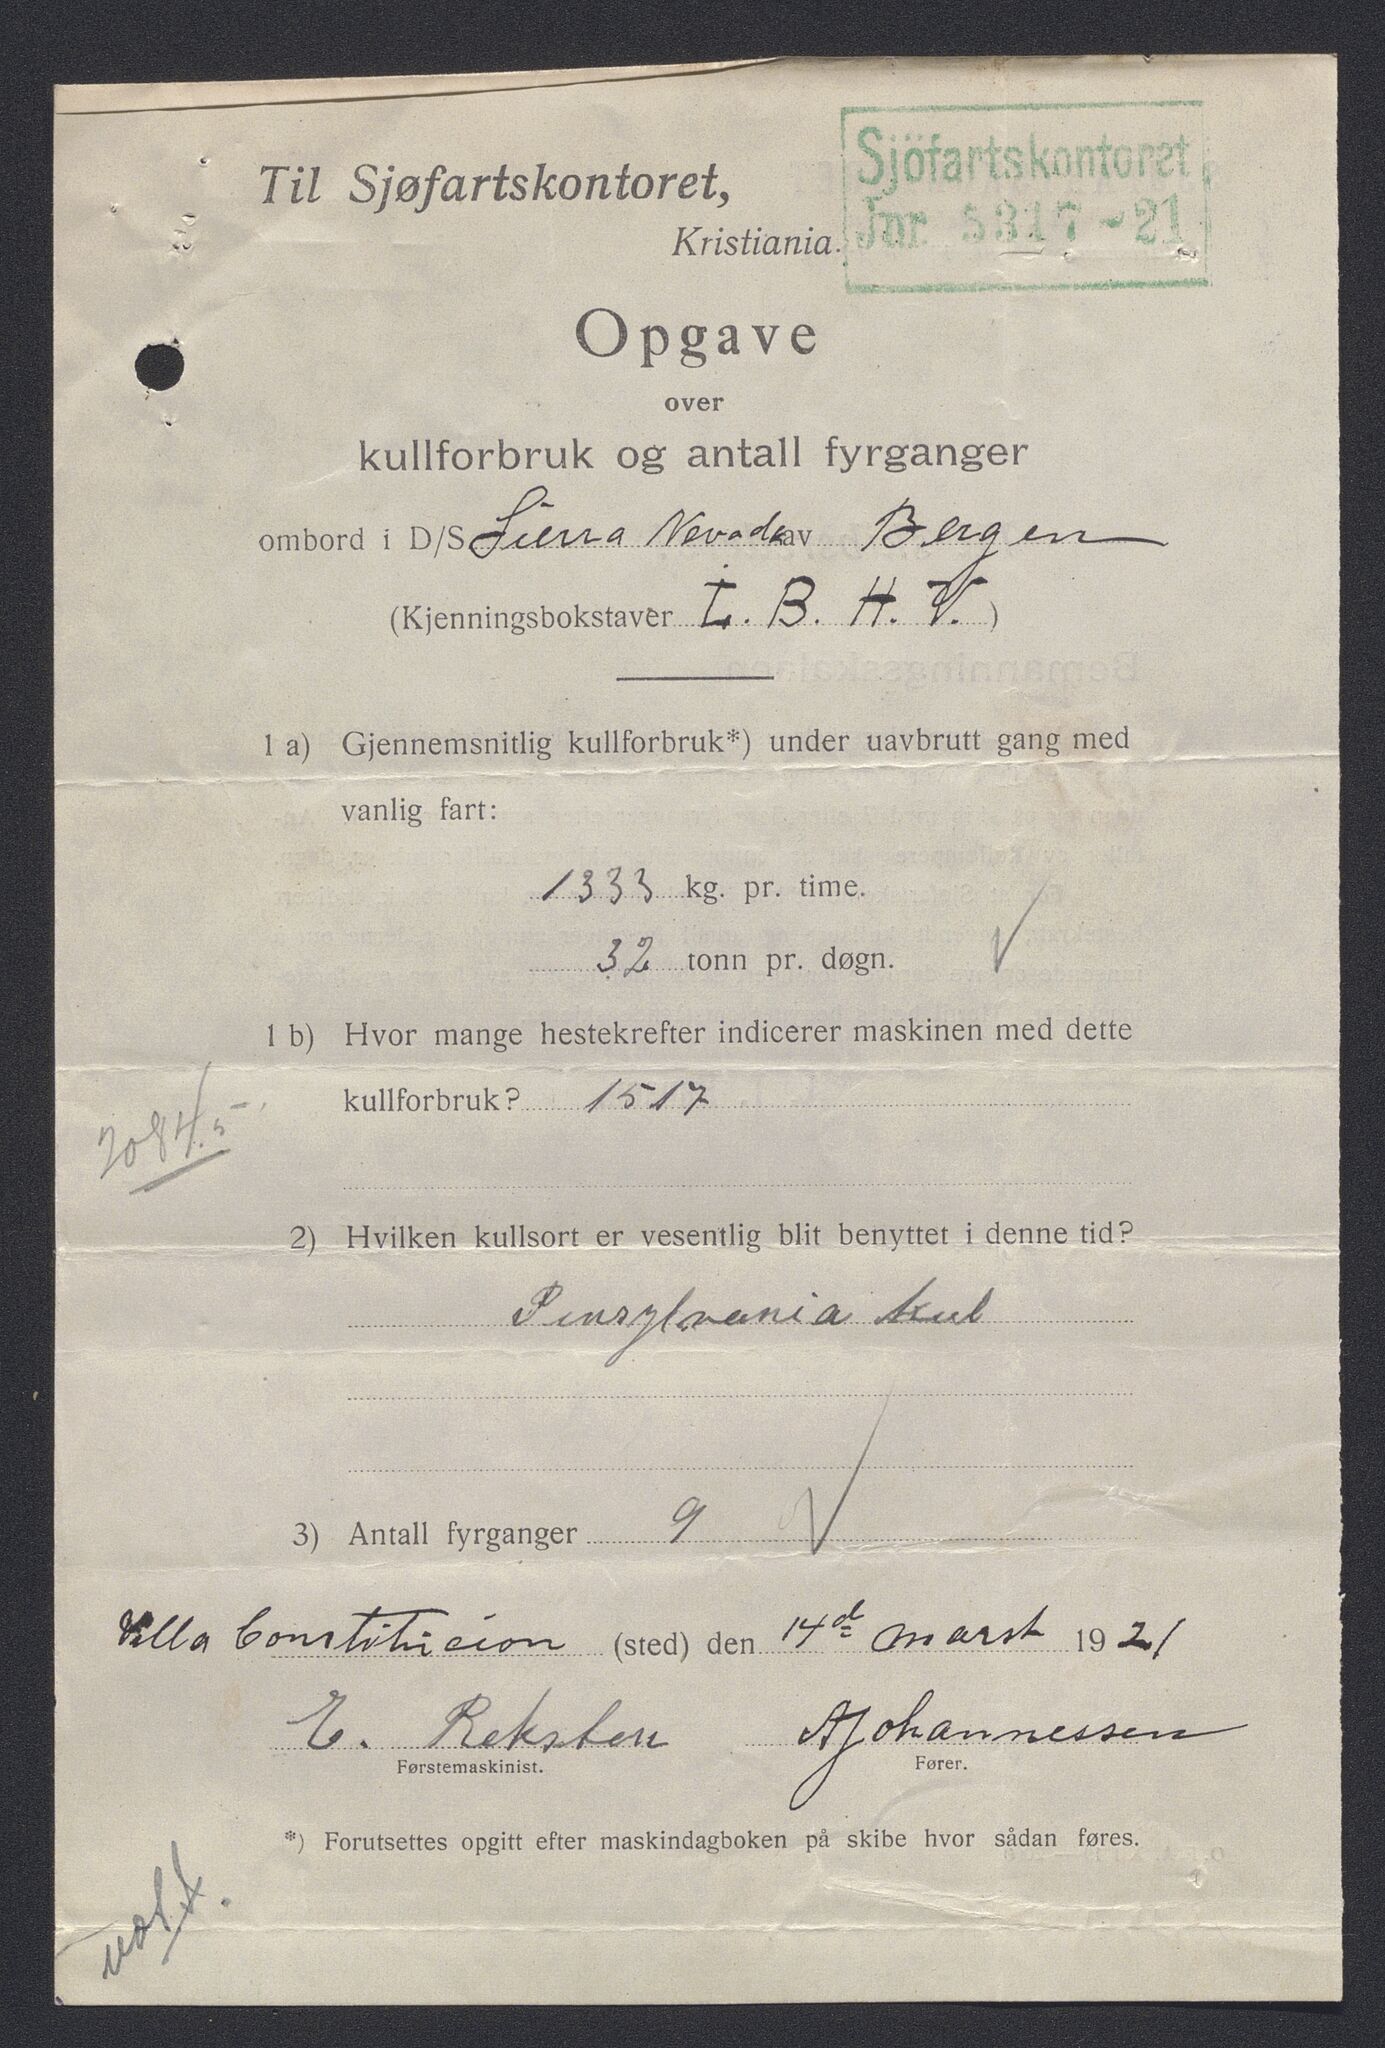 Sjöfartskontoret
Jnr 5317-21
Til Sjøfartskontoret,
Kristiania.
Opgave
over
kullforbruk og antall fyrganger
ombord i D/S Sierra Nevada av Bergen
(Kjenningsbokstaver L. B. H. V.)
1 a) Gjennemsnitlig kullforbruk*) under uavbrutt gang med
vanlig fart:
1333 kg. pr. time.
32 tonn pr. døgn.
1 b) Hvor mange hestekrefter indicerer maskinen med dette
kullforbruk? 1517
2084.5
2) Hvilken kullsort er vesentlig blit benyttet i denne tid?
Pensylvania kul
3) Antall fyrganger 9
Villa Constitucion (sted) den 14d marst 1921
E. Reksten AJohannessen
Førstemaskinist. Fører.
*) Forutsettes opgitt efter maskindagboken på skibe hvor sådan føres.